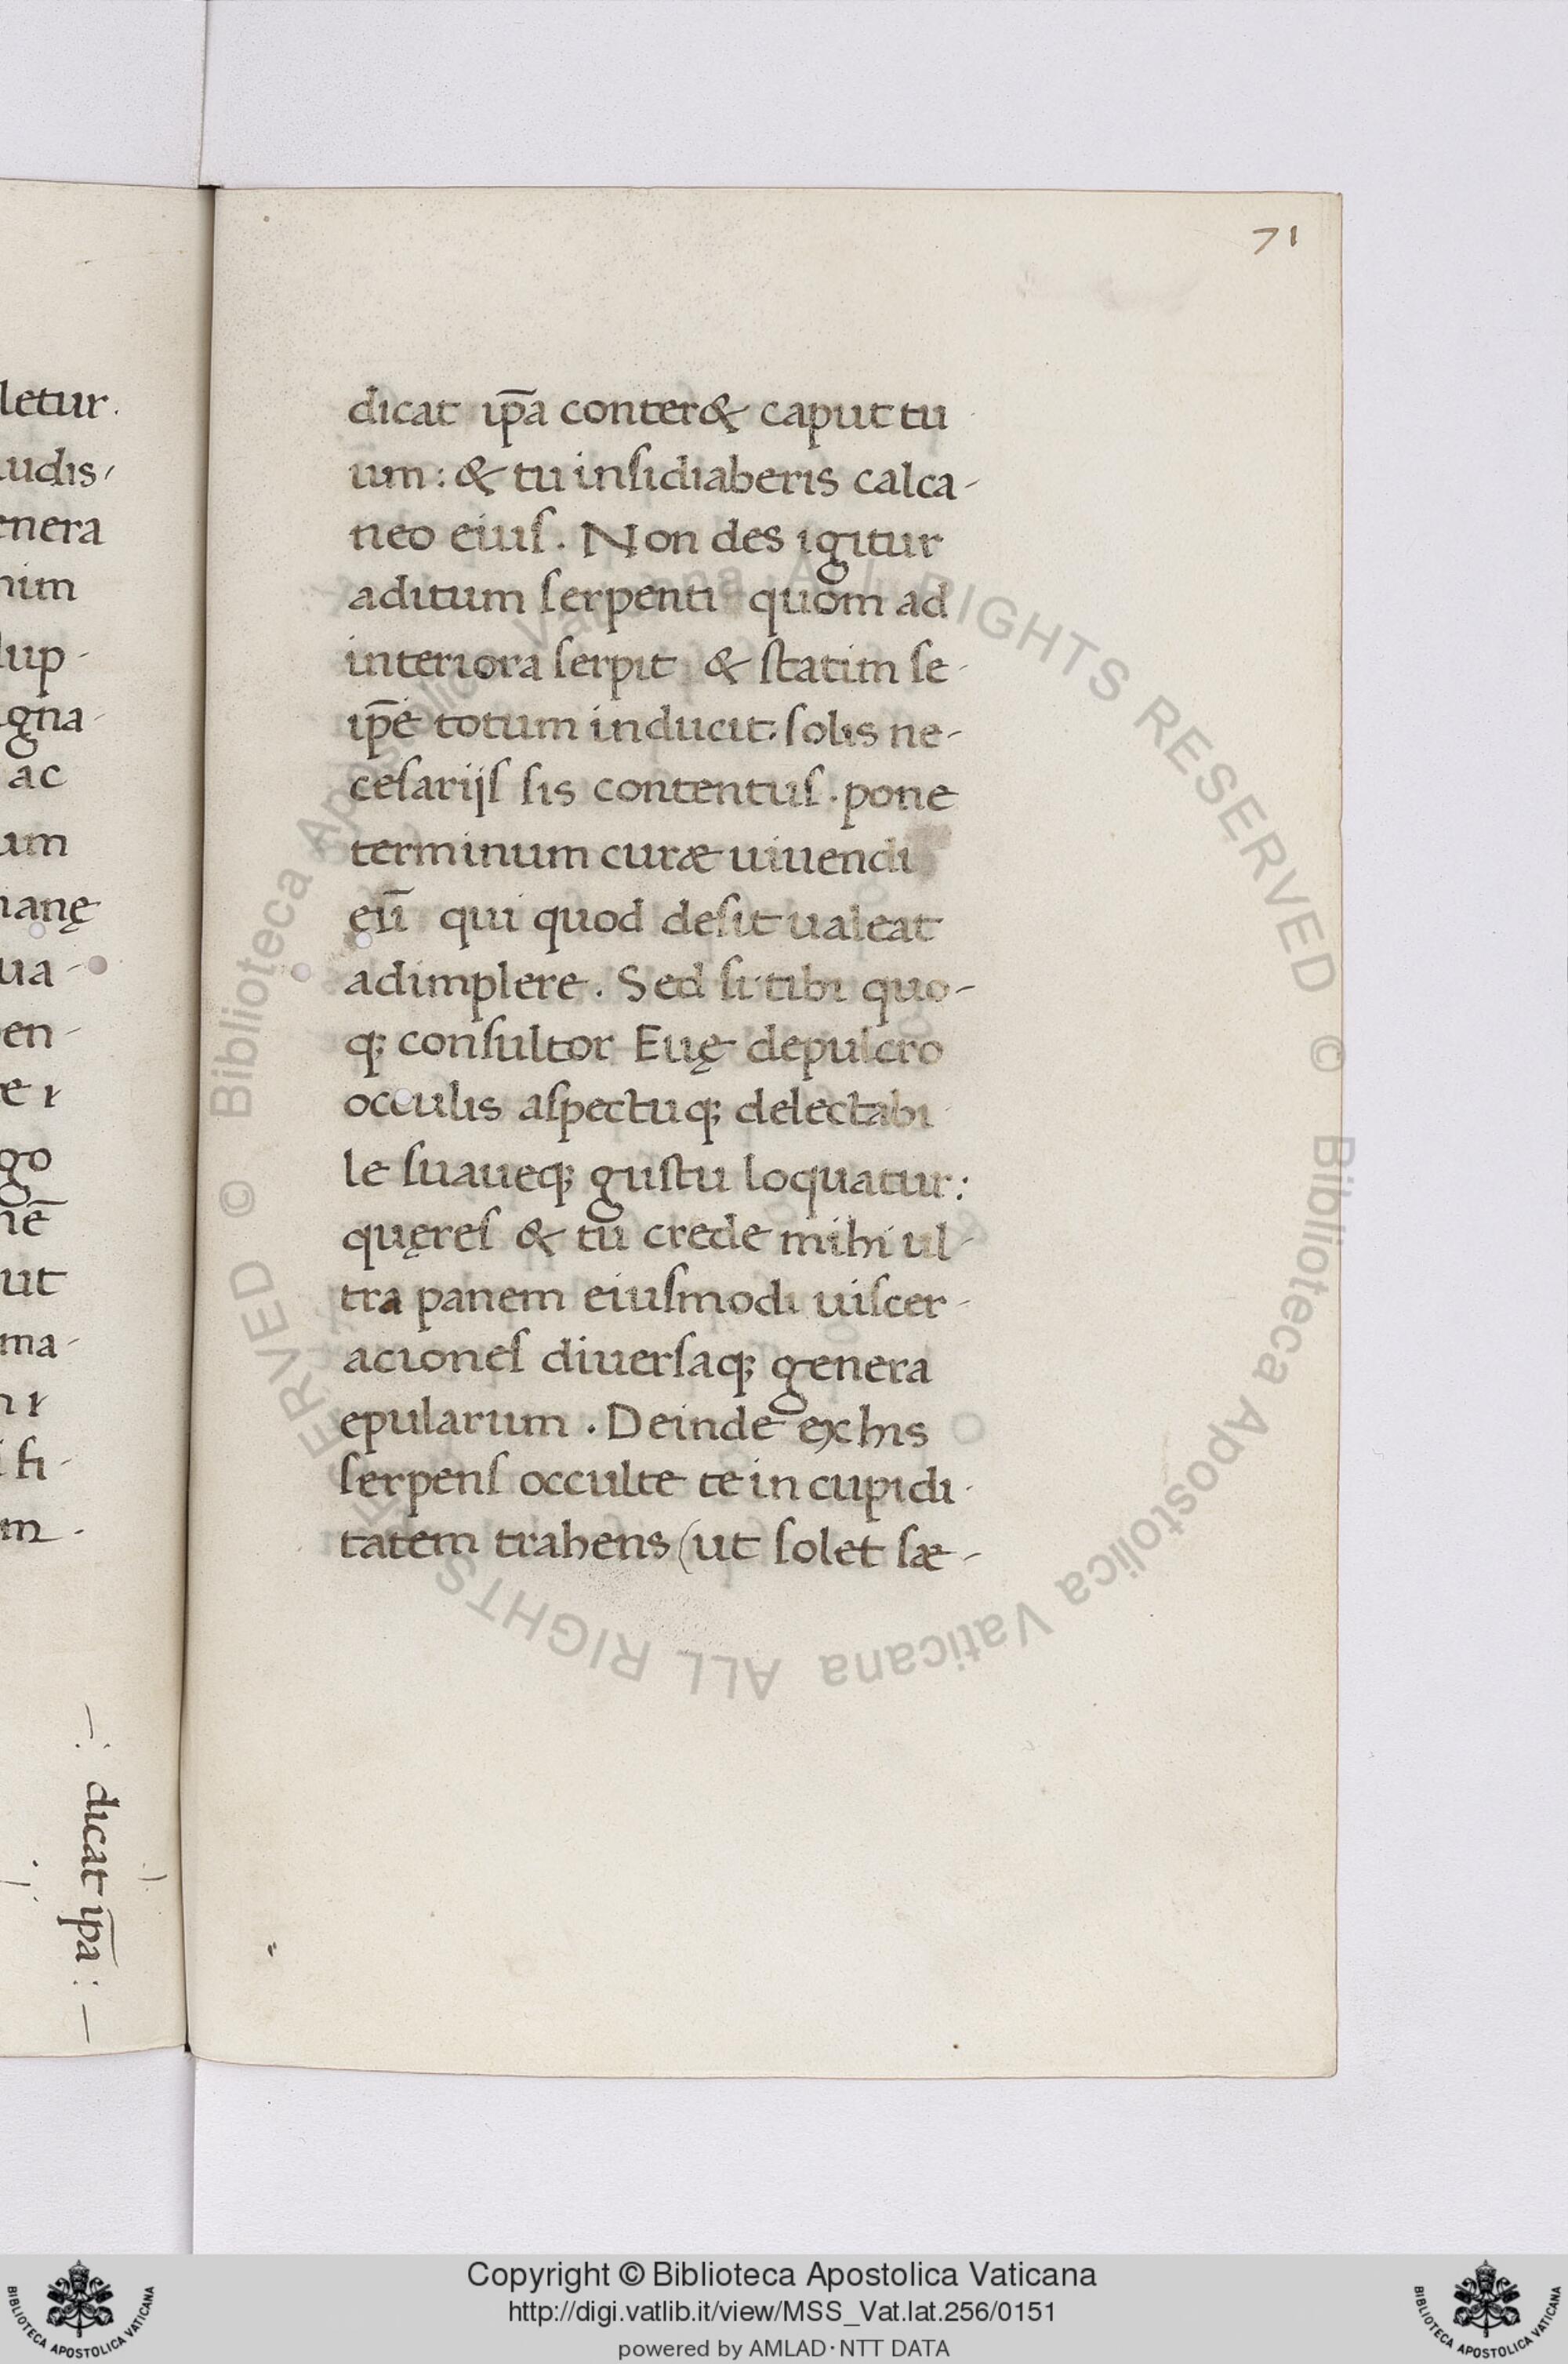 71
letur.
udis/
enera
nim
lup-
igna-
ac
um
nanę
ua-
pen-
e r
go
nē
ut
ma-
n r
i si-
m.
—: dicat ip̄a : —
dicat ip̄a conter& caput tu
um : & tu inſidiaberis calca-
neo eiuſ . Non des igitur
aditum ſerpenti quom ad
interiora ſerpit & ſtatim ſe-
ip̄e totum inducit: ſolis ne-
ceſarijſ ſis contentuſ . pone
terminum curæ uiuendi
eū qui quod deſit ualeat
adimplere . Sed ſi tibi quo-
q; conſultor Euę depulcro
occulis aſpectuq; delectabi
le ſuaueq; guſtu loquatur :
quęreſ & tu crede mihi ul-
tra panem eiuſmodi uiſcer-
acioneſ diuerſaq; genera
epularum . Deinde ex his
ſerpenſ occulte te in cupidi-
tatem trahens (ut ſolet ſæ-
© Biblioteca Apostolica Vaticana ALL RIGHTS RESERVED © Biblioteca Apostolica Vaticana ALL RIGHTS RESERVED
BIBLIOTECA APOSTOLICA VATICANA
Copyright © Biblioteca Apostolica Vaticana
http://digi.vatlib.it/view/MSS_Vat.lat.256/0151
powered by AMLAD·NTT DATA
BIBLIOTECA APOSTOLICA VATICANA